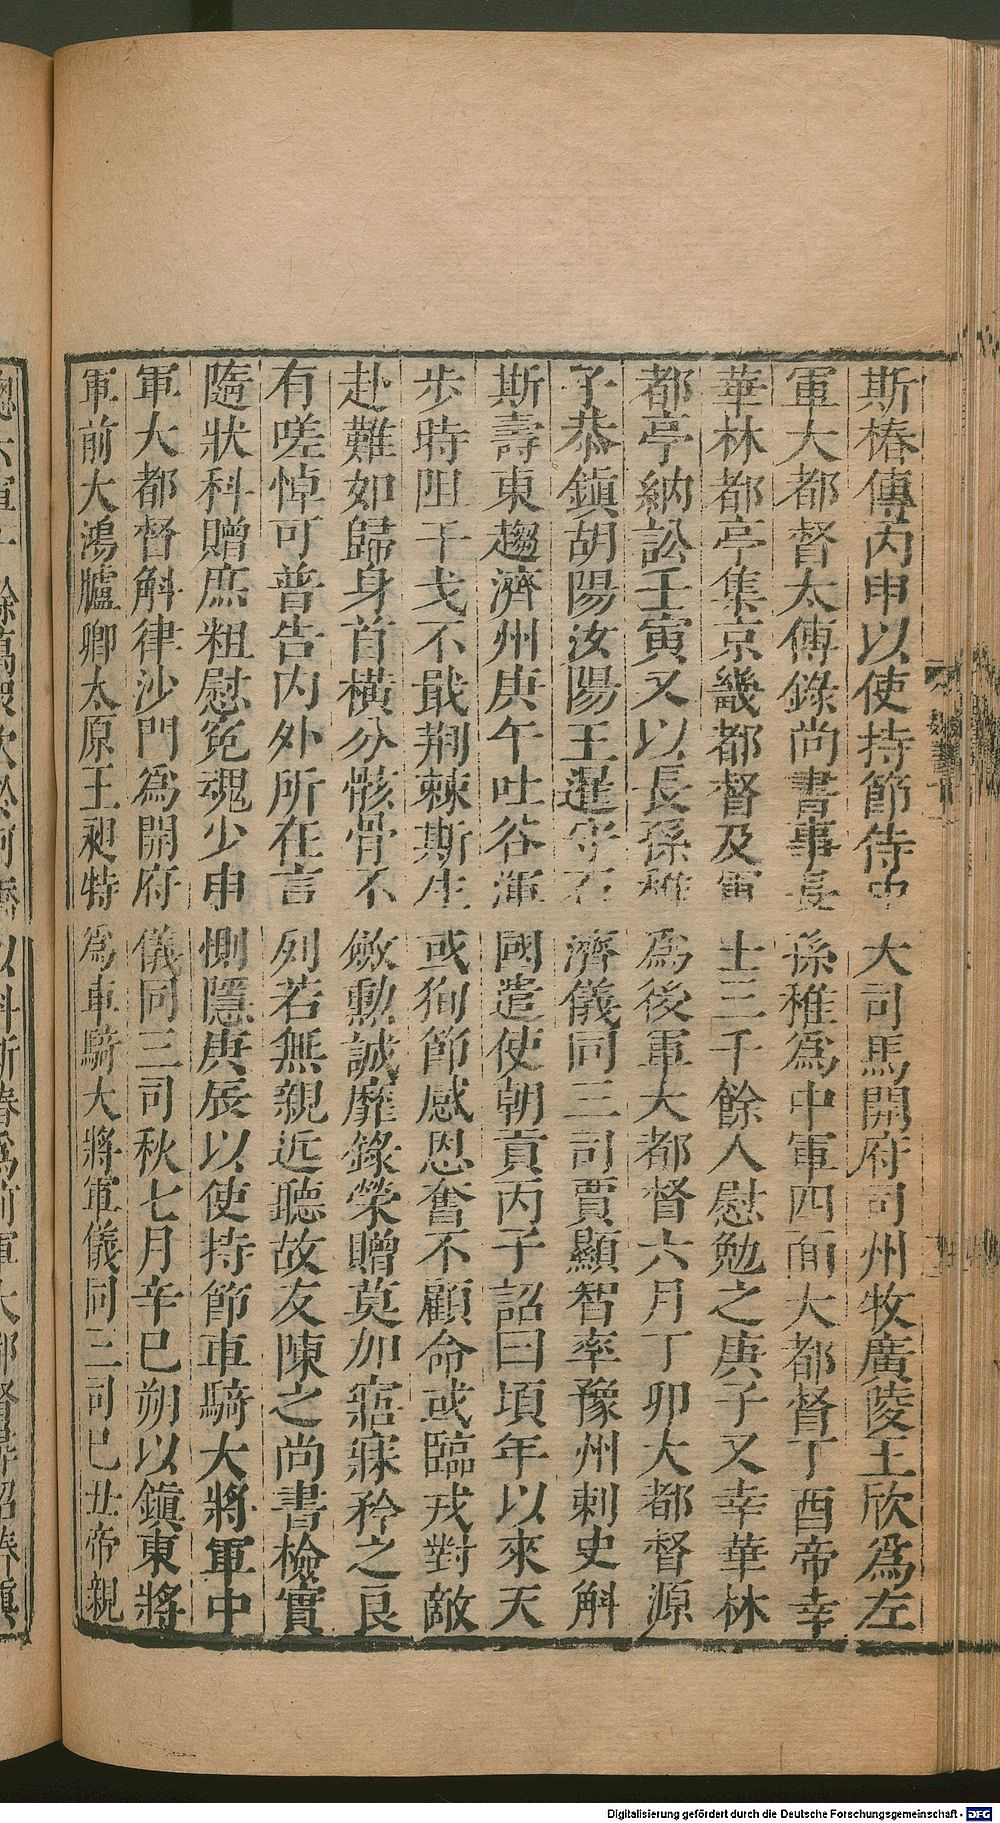 斯椿傳丙申以使持節侍中大司馬開府司州牧廣陵王欣爲左
軍大都督太傅錄尚書事長孫稚爲中軍四面大都督丁酉帝幸
華林都亭集京畿都督及軍士三千餘人慰勉之庚子又幸華林
都亭納訟壬寅又以長孫稚爲後軍大都督六月丁卯大都督源
子恭鎮胡陽汝陽王暹守石濟儀同三司賈顯智率豫州刺史斛
斯壽東趨濟州庚午吐谷渾國遣使朝貢丙子詔曰頃年以來天
步時阻干戈不戢荆棘斯生或狥節感恩奮不顧命或臨戎對敵
赴難如歸身首橫分骸骨不斂勳誠靡錄榮贈莫加寤寐矜之良
有嗟悼可普告內外所在言列若無親近聽故友陳之尚書檢實
隨狀科贈庶粗慰冤魂少申惻隱庚辰以使持節車騎大將軍中
軍大都督斛律沙門爲開府儀同三司秋七月辛巳朔以鎮東將
軍前大鴻臚卿太原王昶特爲車騎大將軍儀同三司己丑帝親
總六軍十餘萬眾次於河橋以斛斯椿爲前軍大都督尋詔椿鎮
Digitalisierung gefördert durch die Deutsche Forschungsgemeinschaft - DFG